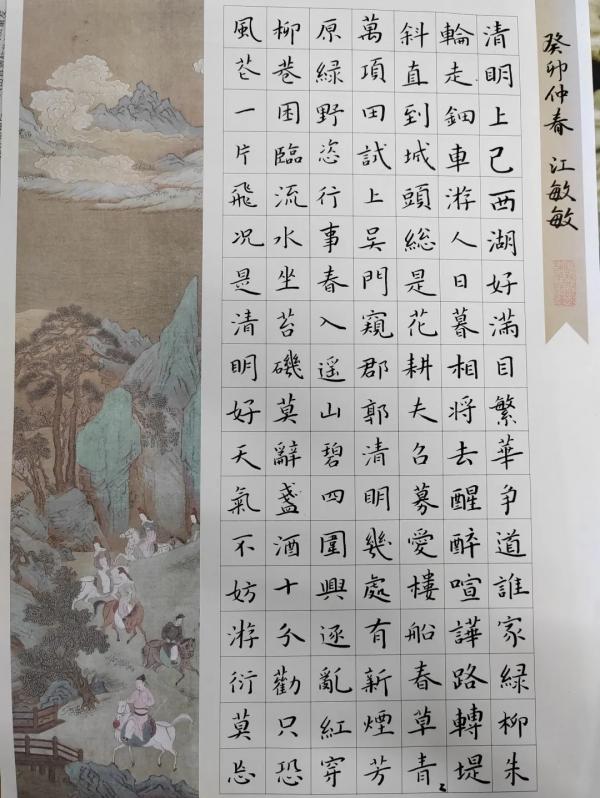 癸卯仲春 江敏敏
清明上已西湖好滿目繁華争道誰家綠柳朱
輪走鈿車游人日暮相將去醒醉喧譁路轉堤
斜直到城頭總是花耕夫召募愛樓船春草青々
萬項田試上吳門窺郡郭清明幾處有新煙芳
原綠野恣行事春入遥山碧四圍興逐亂紅穿
柳巷困臨流水坐苔磯莫辭盞酒十分勸只恐
風花一片飛况是清明好天氣不妨游衍莫忘